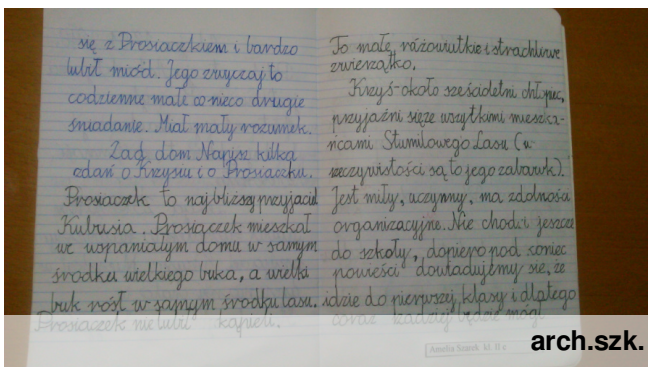 się z Prosiaczkiem i bardzo
lubił miód. Jego zwyczaj to
codzienne małe co nieco drugie
śniadanie. Miał mały rozumek.
Zad. dom Napisz kilka
zdań o Krzysiu i o Prosiaczku.
Prosiaczek to najbliższy przyjaciel
Kubusia. Prosiączek mieszkał
we wspaniałym domu w samym
środku wielkiego buka, a wielki
buk rósł w samym środku lasu.
Prosiaczek nie lubi kąpieli.
To małe, różowiutkie i strachliwe
zwierzątko.
Krzyś-około sześcioletni chłopiec,
przyjaźni się ze wszytkimi mieszka-
ńcami Stumilowego Lasu (w
rzeczywistości są to jego zabawk).
Jest miły, uczynny, ma zdolności
organizacyjne. Nie chodzi jeszcze
do szkoły, dopiero pod koniec
powieści dowiadujemy się, że
idzie do pierwszej klasy i dlatego
coraz rzadziej będzie mógł
Amelia Szarek kl. II c
arch.szk.